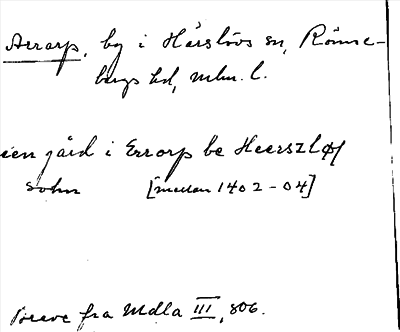 Arrarp, by i Härslövs sn, Rönne-
bergs hd, mlm. l.
een gård i Errorp be Heerszløff
sohn [mellan 1402-04]
Breve fra Mdla III, 806.